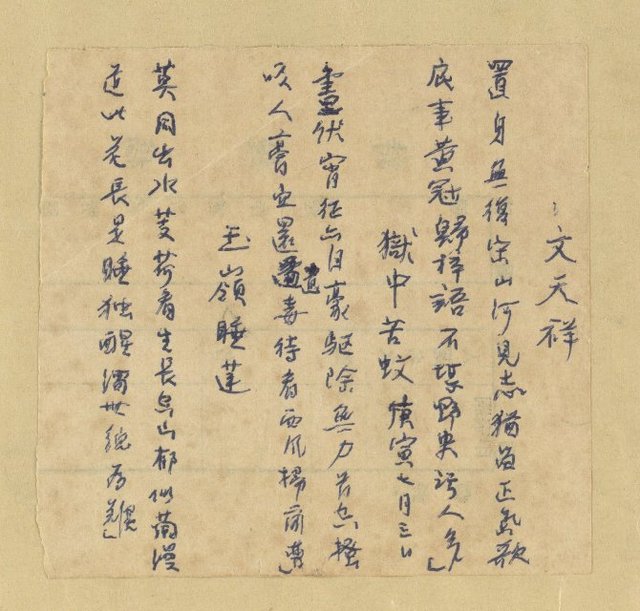 文天祥
置身無復宋山河見志猶留正氣歌
底事黃冠歸梓語不堪野史誣人多
獄中苦蚊 庚寅七月三日
晝伏宵征亦自豪驅除無力苦空搔
吸人膏血還遺毒待看西風掃爾曹
玉嶺睡蓮
莫同出水芰荷看生長烏山郁似蘭漫
道此花長是睡独醒濁世總為難